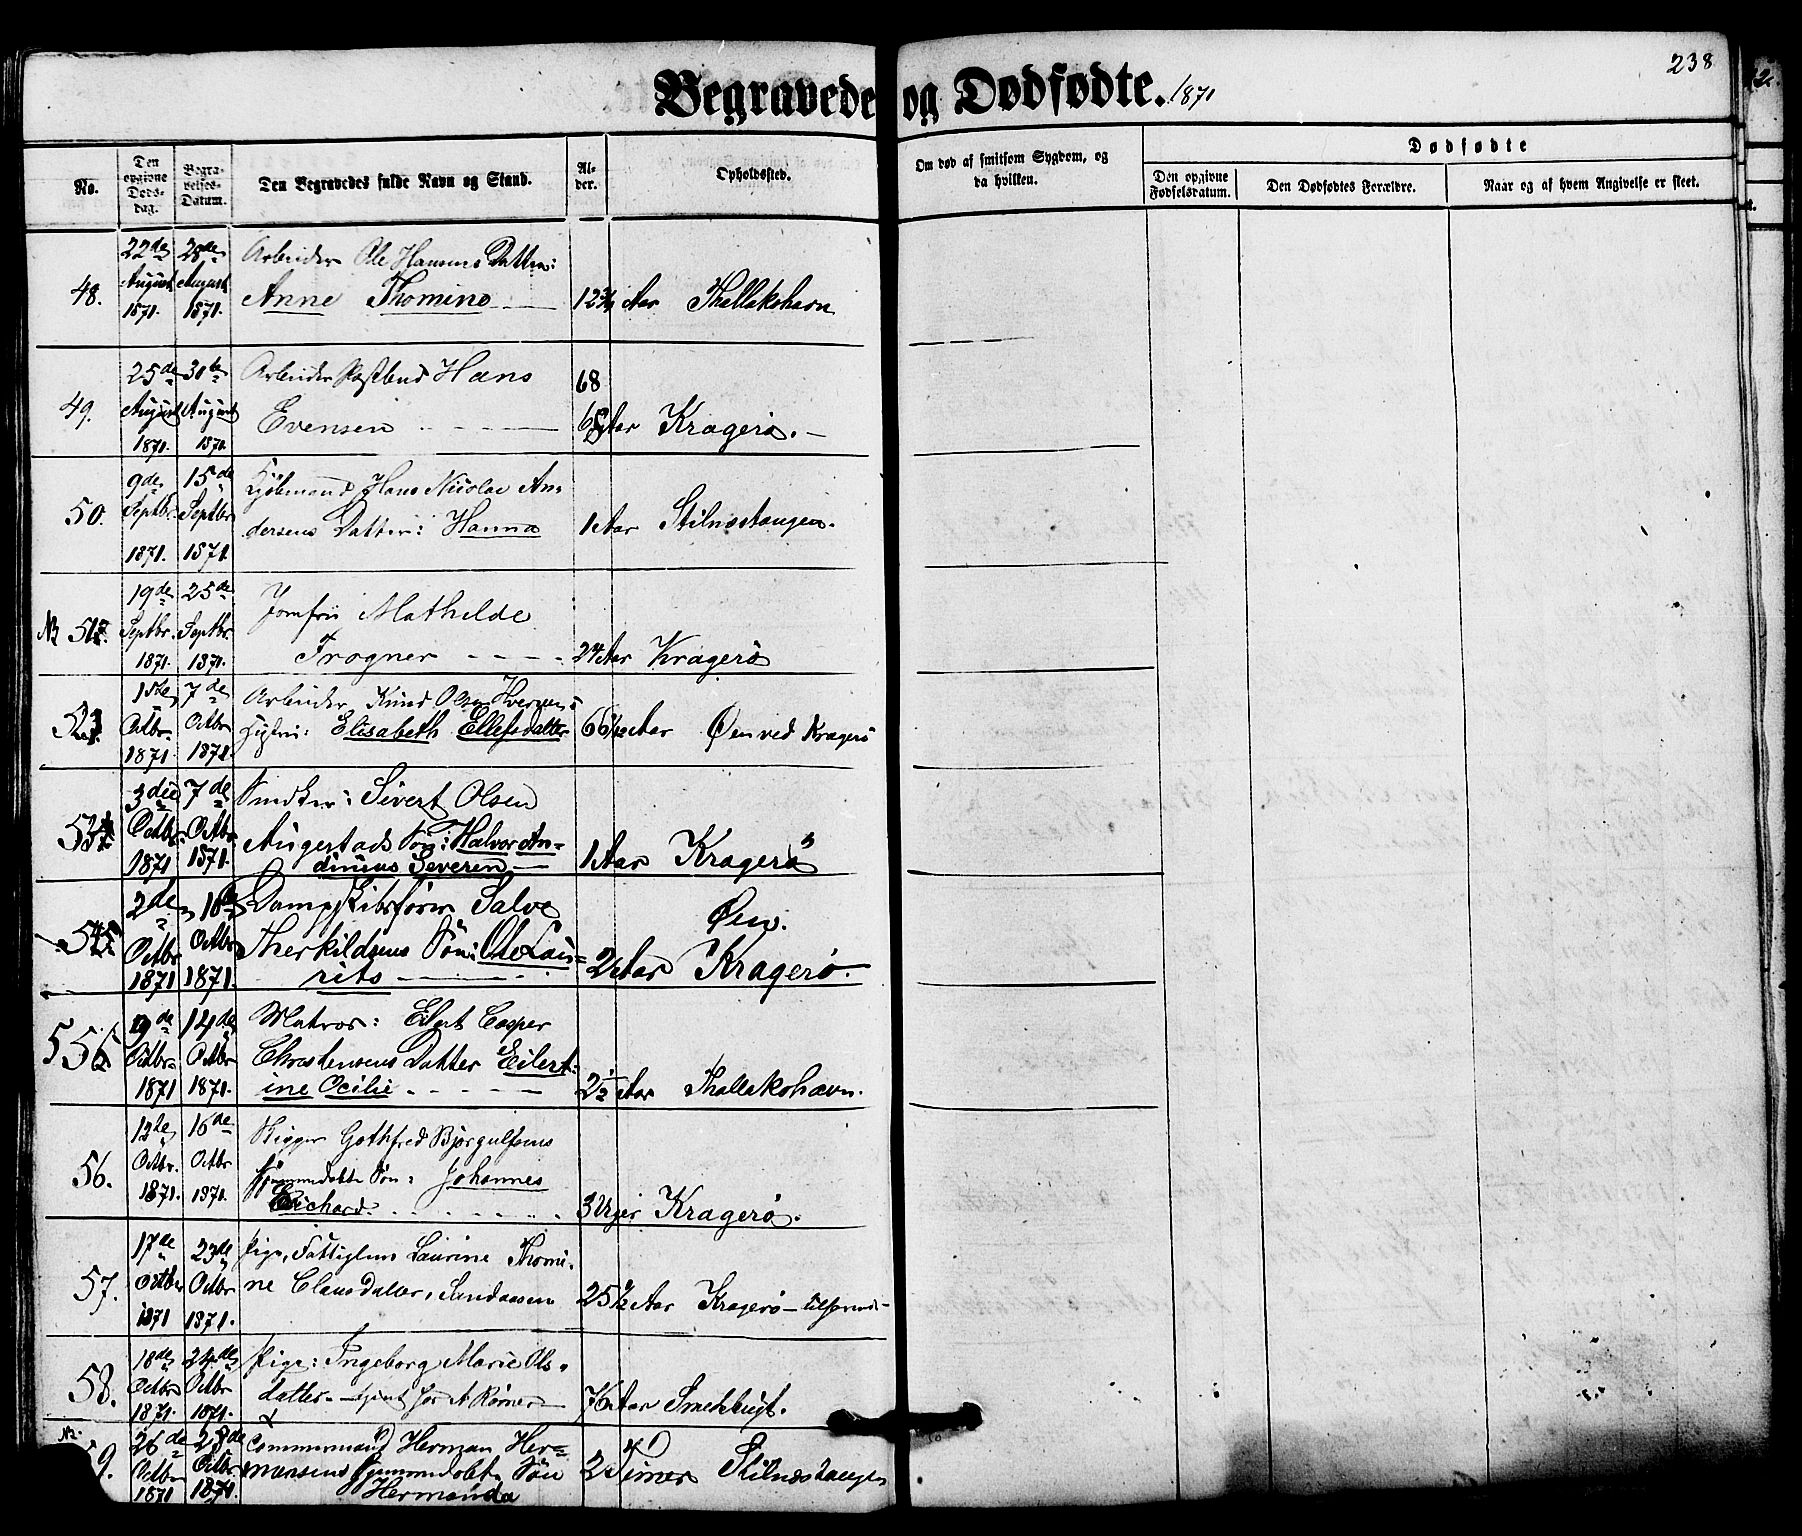 238
Begravede og Dødfødte. 1871
No.
Den opgivne Døds-dag.
Begra-velses-Datum.
Den Begravedes fulde Navn og Stand.
Al-der.
Opholdssted.
Om død af smitsom Sygdom, og da hvilken.
Dødfødte
Den opgivne Fødselsdatum.
Den Dødfødtes Forældre.
Naar og af hvem Angivelse er skeet.
22de 28de Arbeider Ole Hansens Datter:
48. August 1871. August 1871. Anne Thomine 12 Aar
25de 30te Arbeider Hans
49. August 1871. August 1871. Evensen 68 Aar Kragerø.
9de 15de Kjøbmand Hans Nicolai An-
50. Septbr. 1871. Septbr 1871. dersens Datter: Hanna 1 Aar Stilnæstangen.
19de 25de Jomfru Mathilde
No Septbr. 1871. Septbr. 1871. Frogner 24 Aar Kragerø
1ste 7de Arbeider Knud Olsen
Octbr. 1871. Octbr 1871. Elisabeth Ellefsdatter Aar Øen ved Kragerø
3die 7de Sivert Olsen
Octbr. 1871. Octbr. 1871. Augestads Søn: Halvor An-
dinius Severen 1 Aar Kragerø
2de Dampskibsfører Salve Øen.
Octbr 1871 Octbr 1871. Therkildsens Søn: Ole Lau-
rits 2 Aar Kragerø.
9de 14de Matros: Eilert Casper
Octbr. 1871 Octbr 1871. Christensens Datter Eilert-
ine Cecilie 2½ Aar
12te 16de Rigger Gothfred Bjørgulfsens
56. Octbr. 1871. Octbr 1871. Hjemmedøbte Søn: Johannes
Richard. 3 Uger Kragerø.
17de 23de Pige, Fattiglem Laurine Thomi-
57. Octbr 1871 Octbr 1871. ne Clausdatter, 25½ Aar Kragerø
18de 24de Pige: Ingeborg Marie Ols-
58. Octbr 1871. Octbr 1871. datter 76 Aar
No. 26de 28de Herman Her-
9. Octbr 1871 Octbr. 1871. mansens hjemmedøbte Søn 2 Timer Stilnæstangen
Hermanda